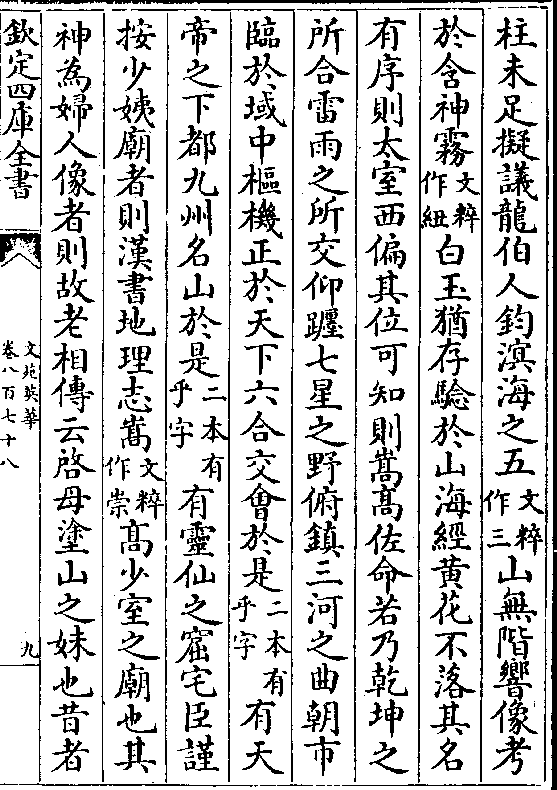 柱未足擬議龍伯人釣溟海之五文粹作三山無階響像考
於含神霧文粹作紐白玉猶存驗於山海經黄花不落其名
有序則太室西偏其位可知則嵩髙佐命若乃乾坤之
所合雷雨之所交仰躔七星之野俯鎮三河之曲朝市
臨於域中樞機正於天下六合交會於是二本有乎字有天
帝之下都九州名山於是二本有乎字有靈仙之窟宅臣謹
按少姨廟者則漢書地理志嵩文粹作崇髙少室之廟也其
神為婦人像者則故老相傳云啓母塗山之妹也昔者
欽定四庫全書
文苑英華
卷八百七十八
九